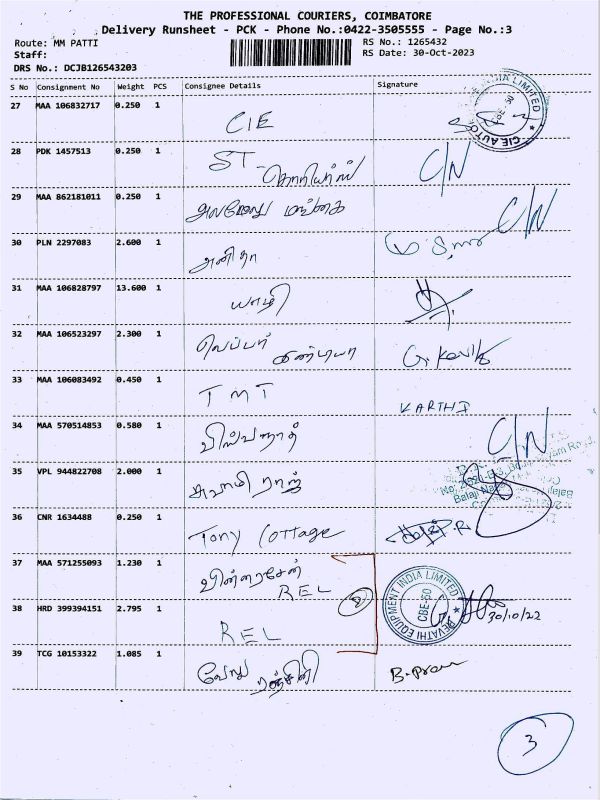 THE PROFESSIONAL COURIERS, COIMBATORE
Delivery Runsheet - PCK - Phone No.:0422-3505555 - Page No.:3
Route: MM PATTI
RS No.: 1265432
Staff:
RS Date: 30-Oct-2023
DRS No.: DCJB126543203
S No Consignment No Weight PCS Consignee Details Signature
27 MAA 106832717 0.250 1 CIE
28 PDK 1457513 0.250 1 ST- C/N
கொரியர்ஸ்
29 MAA 862181011 0.250 1 மங்கை C/N
30 PLN 2297083 2.600 1 அனிதா
31 MAA 106828797 13.600 1 யாழி
32 MAA 106523297 2.300 1 இண்டியா
33 MAA 106083492 0.450 1 TMT KARTHI
34 MAA 570514853 0.580 1 விஸ்வநாத் C/N
35 VPL 944822708 2.000 1 சுவாமி ராஜ்
36 CNR 1634488 0.250 1 Tony Cottage
37 MAA 571255093 1.230 1
REL
REVATHI EQUIPMENT INDIA LIMITED
CBE-50
30/10/22
38 HRD 399394151 2.795 1 REL
39 TCG 10153322 1.085 1 வேலு
3